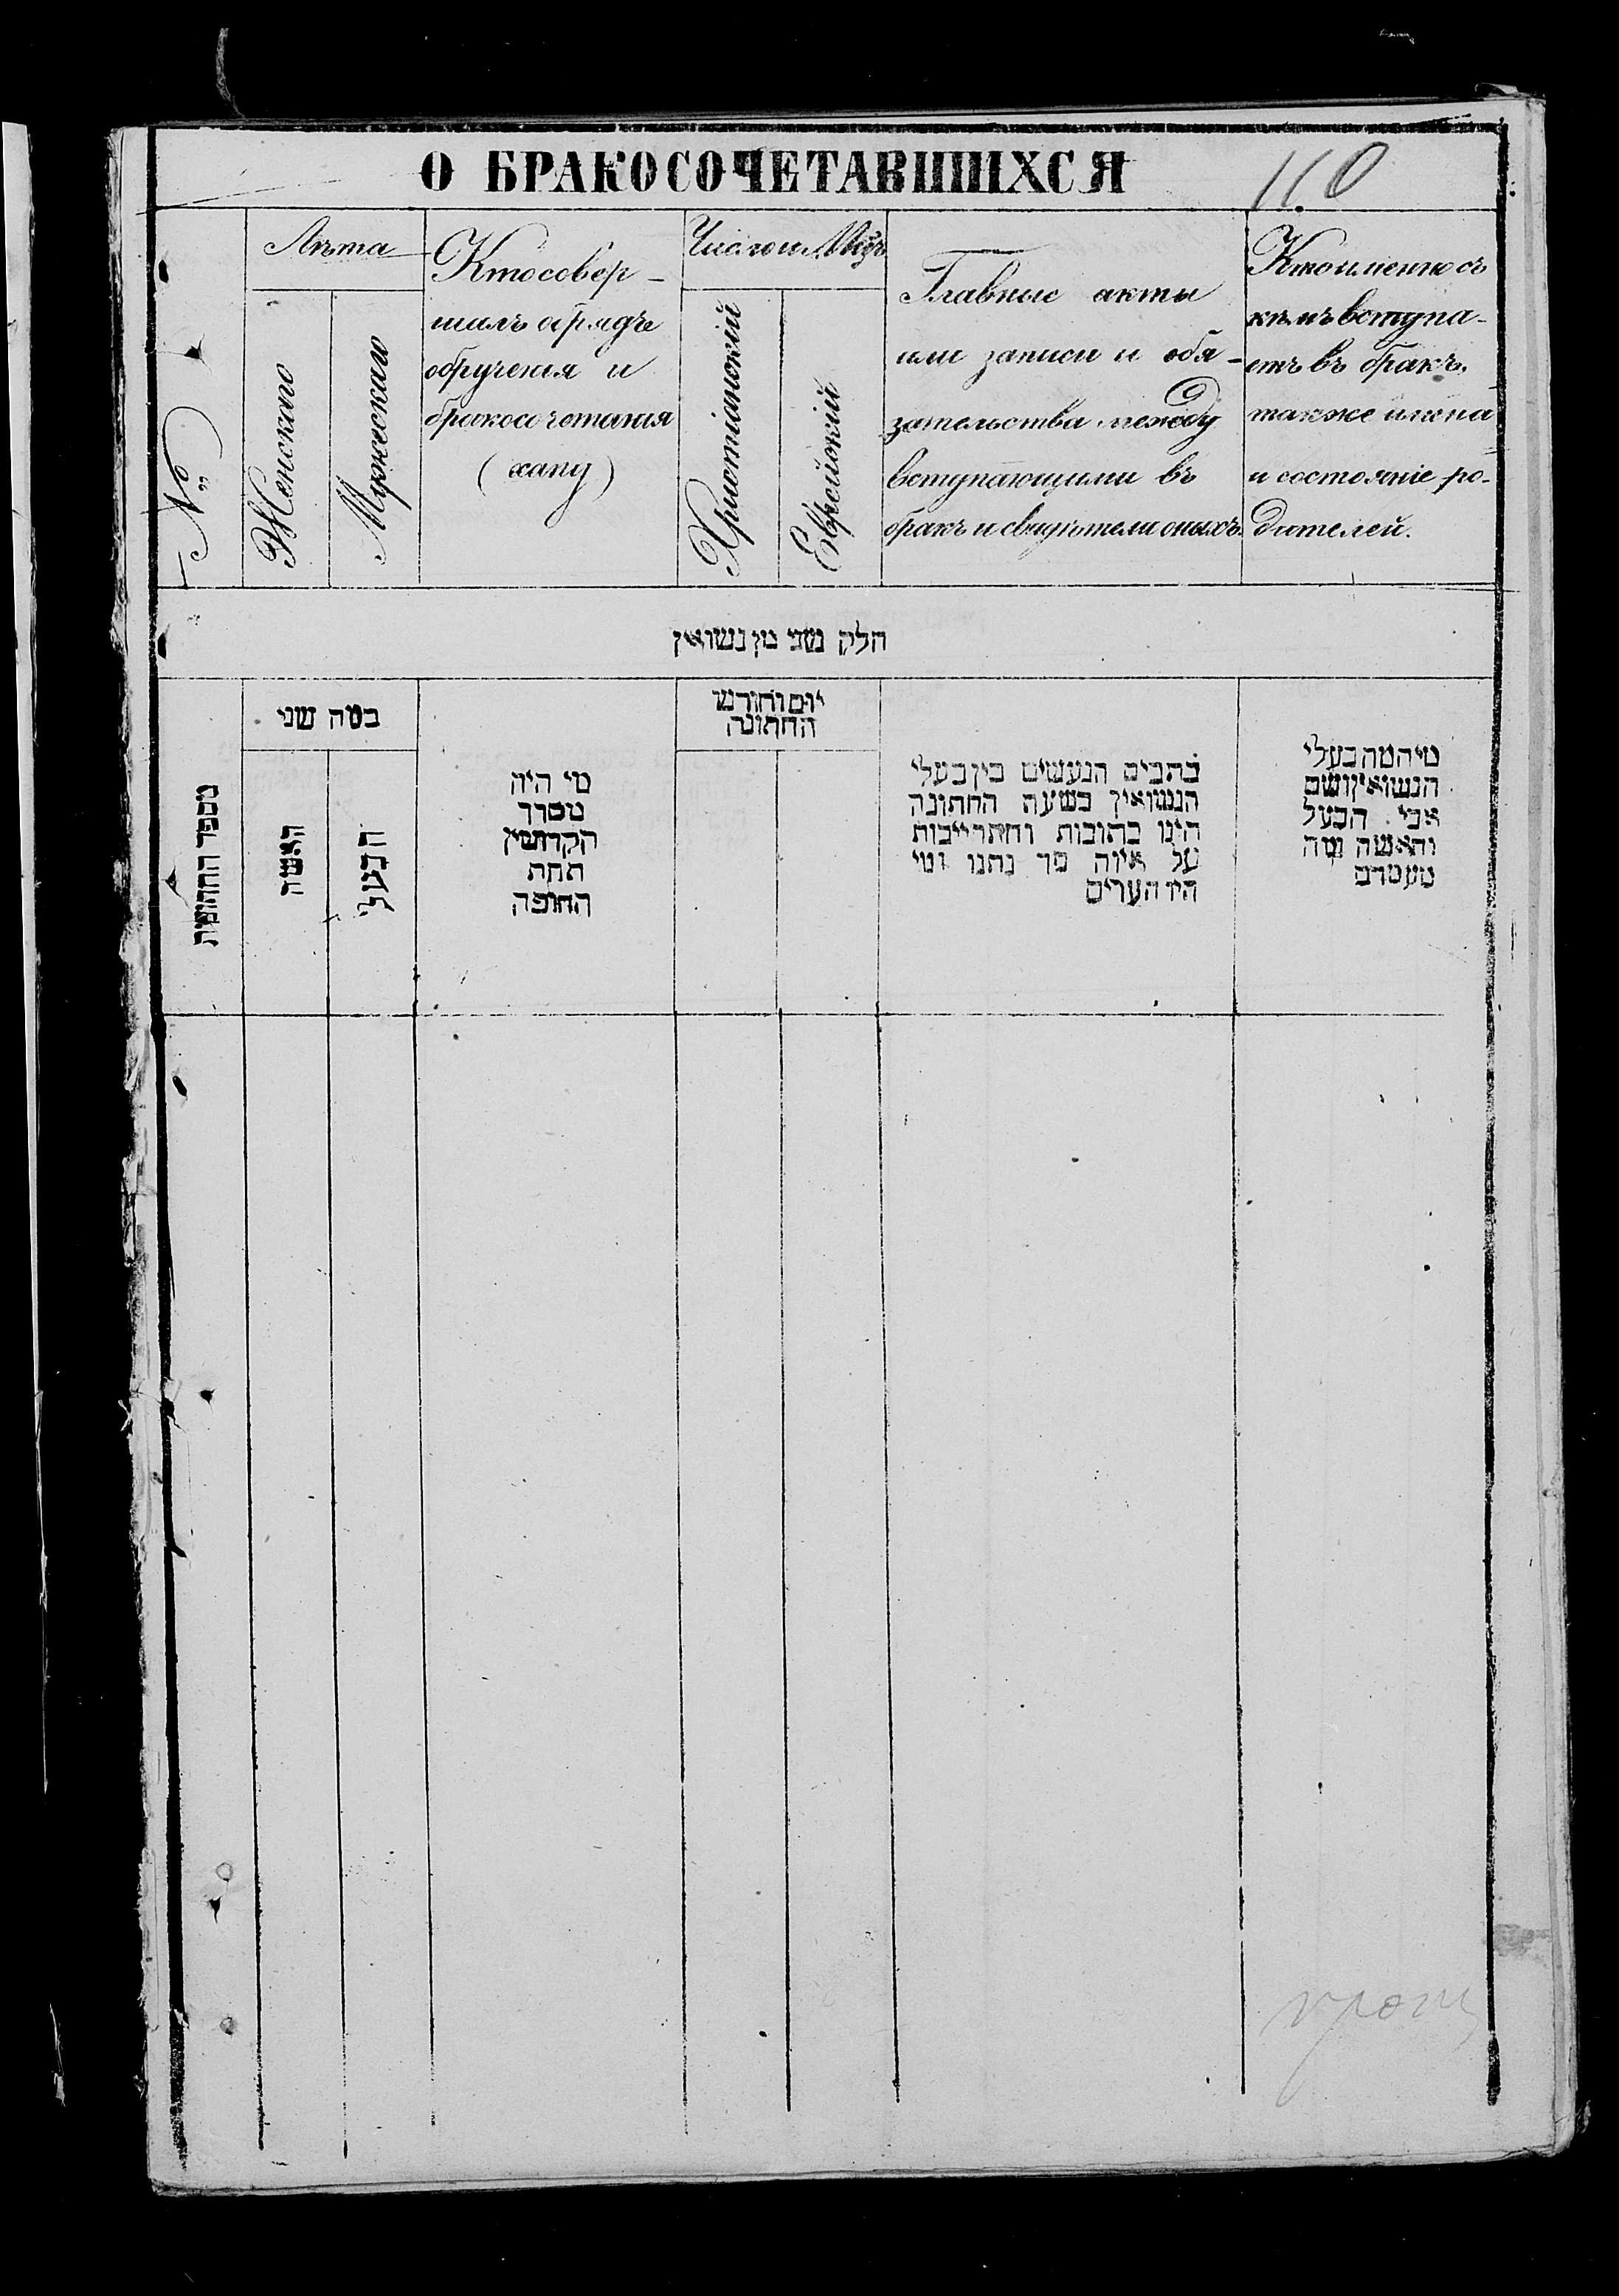 О БРАКОСОЧЕТАВШИХСЯ
110
№
Лѣта
Женскаго
Мужескаго
Кто совер-
шалъ обрядъ
обрученія и
бракосочетанія
(хапу)
Число и Мѣцъ
Христіанскій
Еврейскій
Главные акты
или записи и обя-
зательства между
вступающими въ
бракъ и свидѣтели оныхъ.
Кто именно съ
кѣмъ вступа-
етъ въ бракъ.
также имѣна
и состояніе ро-
дителей.
חלק שני מן נשואין
מספר החתונות
במה שני
האשה
הבעל
מי היה
מסדר
הקדושין
תחת
החופה
יום וחודש
החתונה
כתבים הנעשים בין בעלי
הנשואין בשעה החתונה
היינו כתובות והתחייבות
על איזה סך נתנו ומי
היו העדים
מי המה בעלי
הנשואין ושם
אבי הבעל
והאשה מה
מעמדם